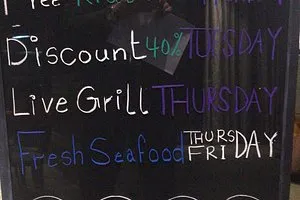 Discount 40% TUESDAY
Live Grill THURSDAY
Fresh Seafood THURS
FRIDAY